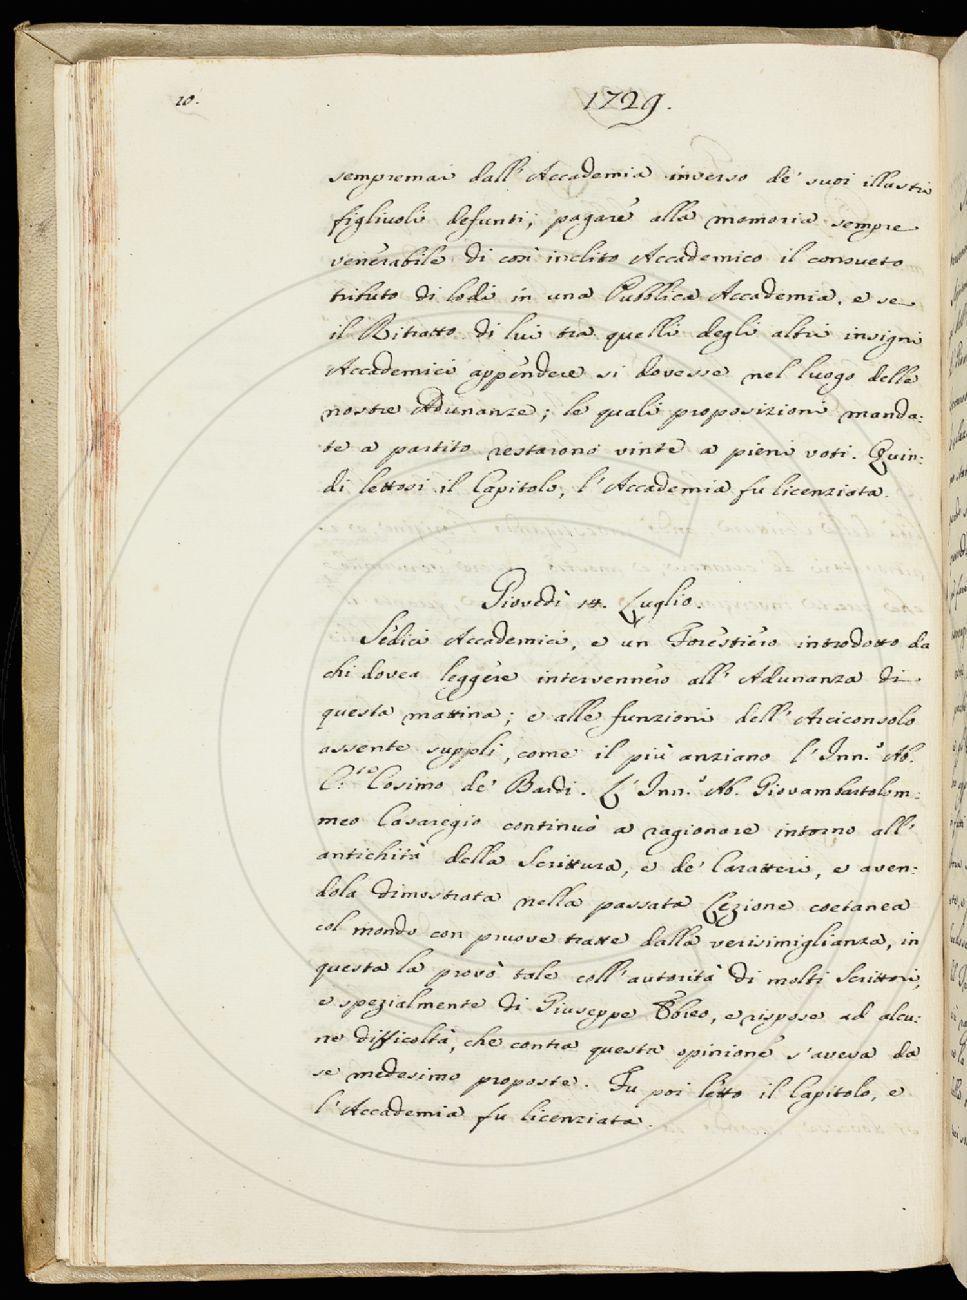 10.
1729.
sempremai dall'Accademia inverso de' suoi illustri
figliuoli defunti; pagare alla memoria sempre
venerabile di così inclito Accademico il consueto
tributo di lodi in una Pubblica Accademia, e se
il Ritratto di lui tra quelli degli altri insigni
Accademici appendere si dovesse nel luogo delle
nostre Adunanze; le quali proposizioni manda:
te a partito restarono vinte a pieni voti. Quin:
di lettosi il Capitolo, l'Accademia fu licenziata.
Giovedì 14. Luglio.
Sedici Accademici, e un Forestiero introdotto da
chi dovea leggere intervennero all'Adunanza di
questa mattina; e alle funzioni dell'Arciconsolo
assente supplì, come il più anziano l'Inn.º Ab.
C.te Cosimo de' Bardi. L'Inn.º Ab. Giovambartolom:
meo Casaregio continuò a ragionare intorno all'
antichità della Scrittura, e de' Caratteri, e aven:
dola dimostrata nella passata Lezione coetanea
col mondo con pruove tratte dalla verisimiglianza, in
questa la provò tale coll'autorità di molti Scrittori,
e spezialmente di Giuseppe Ebreo, e rispose ad alcu:
ne difficoltà, che contra questa opinione s'aveva da
se medesimo proposte. Fu poi letto il Capitolo, e
l'Accademia fu licenziata.